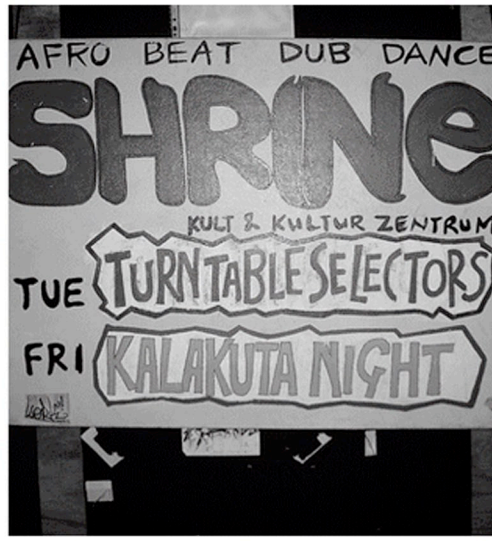 AFRO BEAT DUB DANCE
SHRINe
KULT & KULTUR ZENTRUM
TUE TURNTABLE SELECTORS
FRI KALAKUTA NIGHT